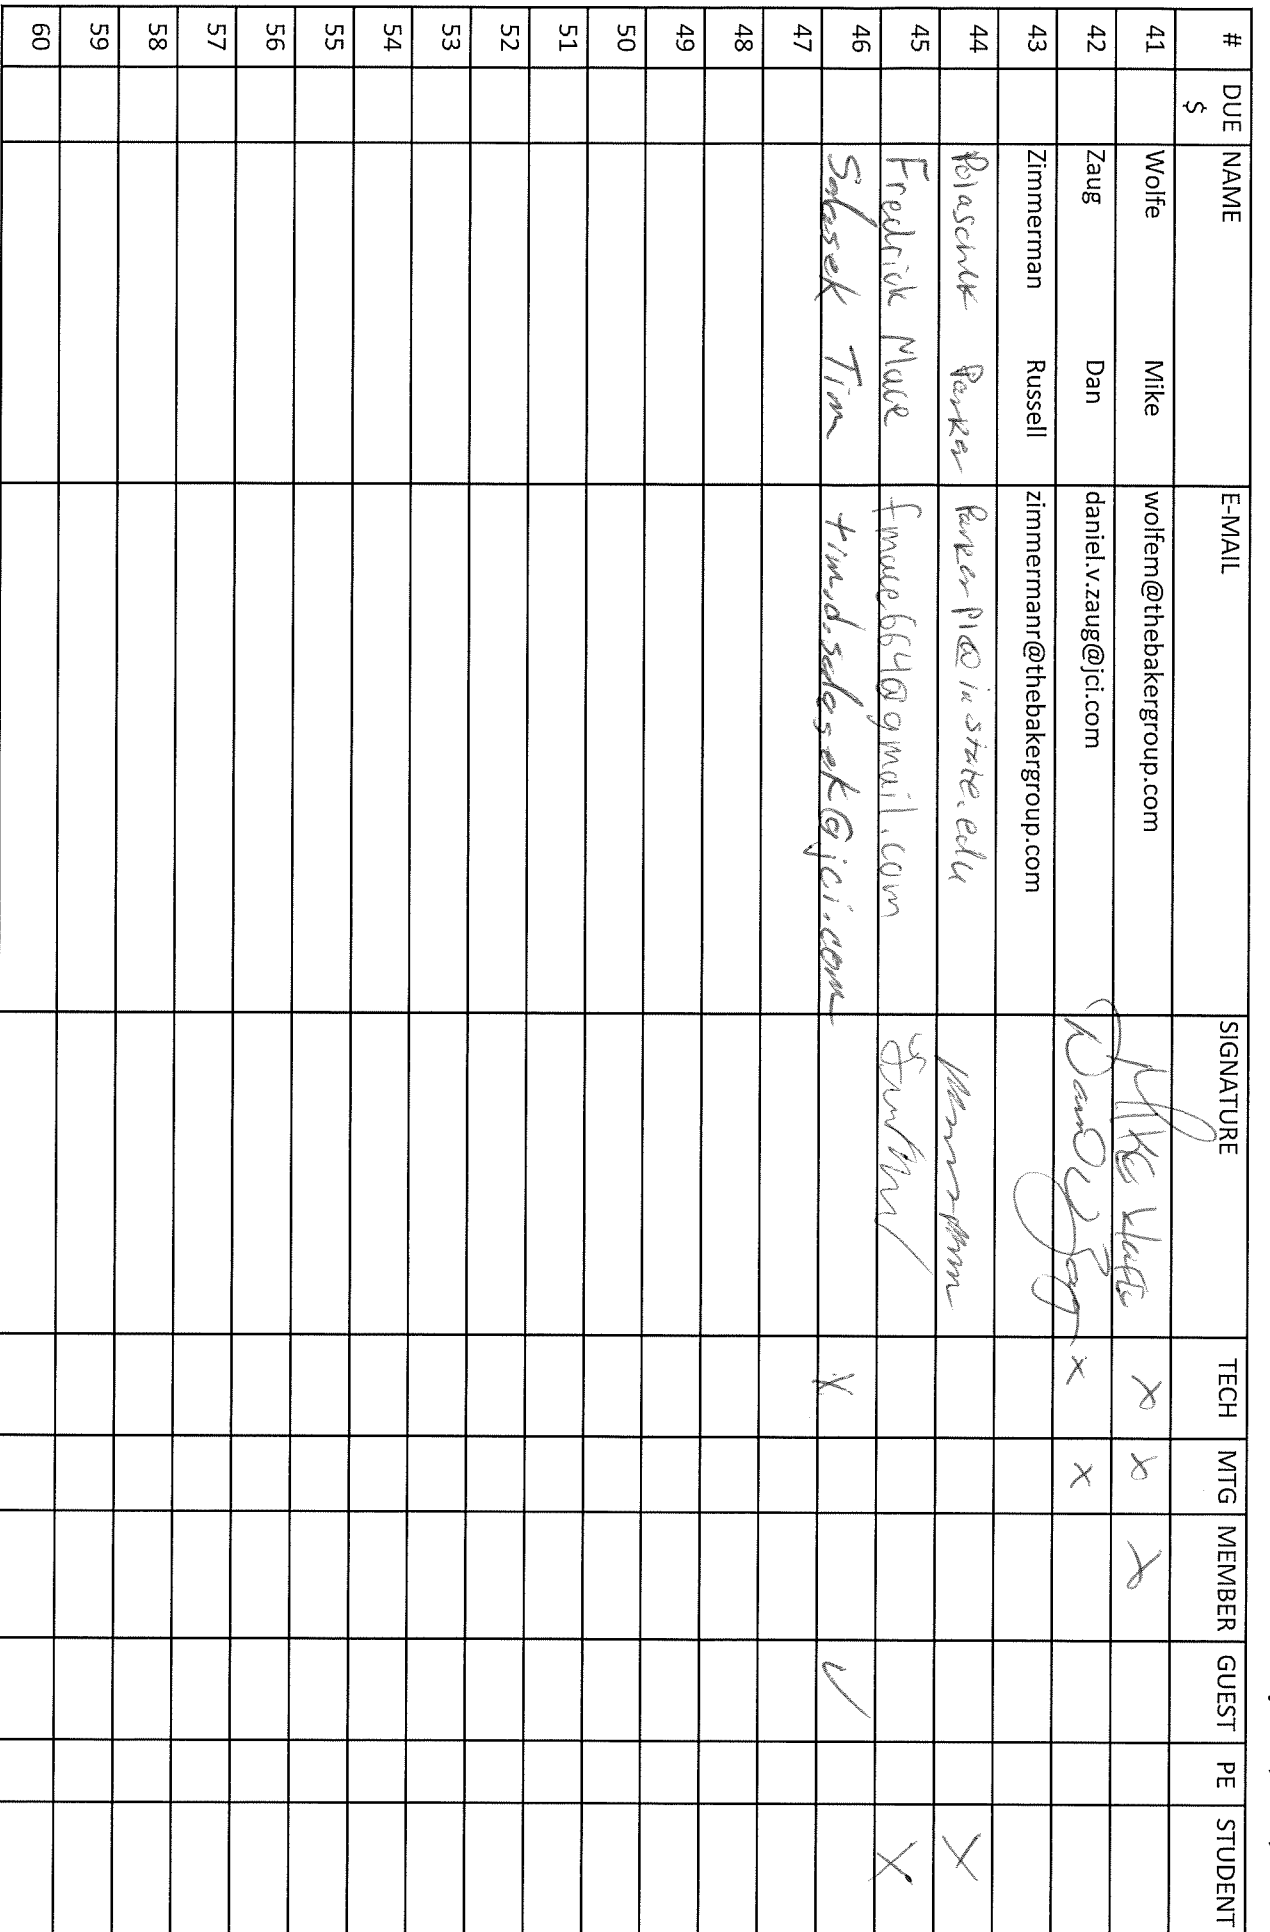 # DUE $ NAME E-MAIL SIGNATURE TECH MTG MEMBER GUEST PE STUDENT
41 Wolfe Mike wolfem@thebakergroup.com Mike Wolfe x x x
42 Zaug Dan daniel.v.zaug@jci.com x x
43 Zimmerman Russell zimmermanr@thebakergroup.com
44 Parker @iastate.edu X
45 Fredrick Mace fmace664@gmail.com X
46 Salasek Tim tim.d.salasek@jci.com X ✓
47
48
49
50
51
52
53
54
55
56
57
58
59
60